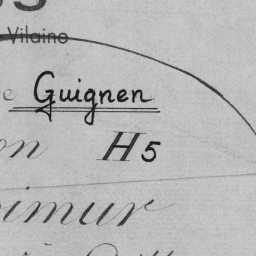 Vilaine
e Guignen
on H5
imur